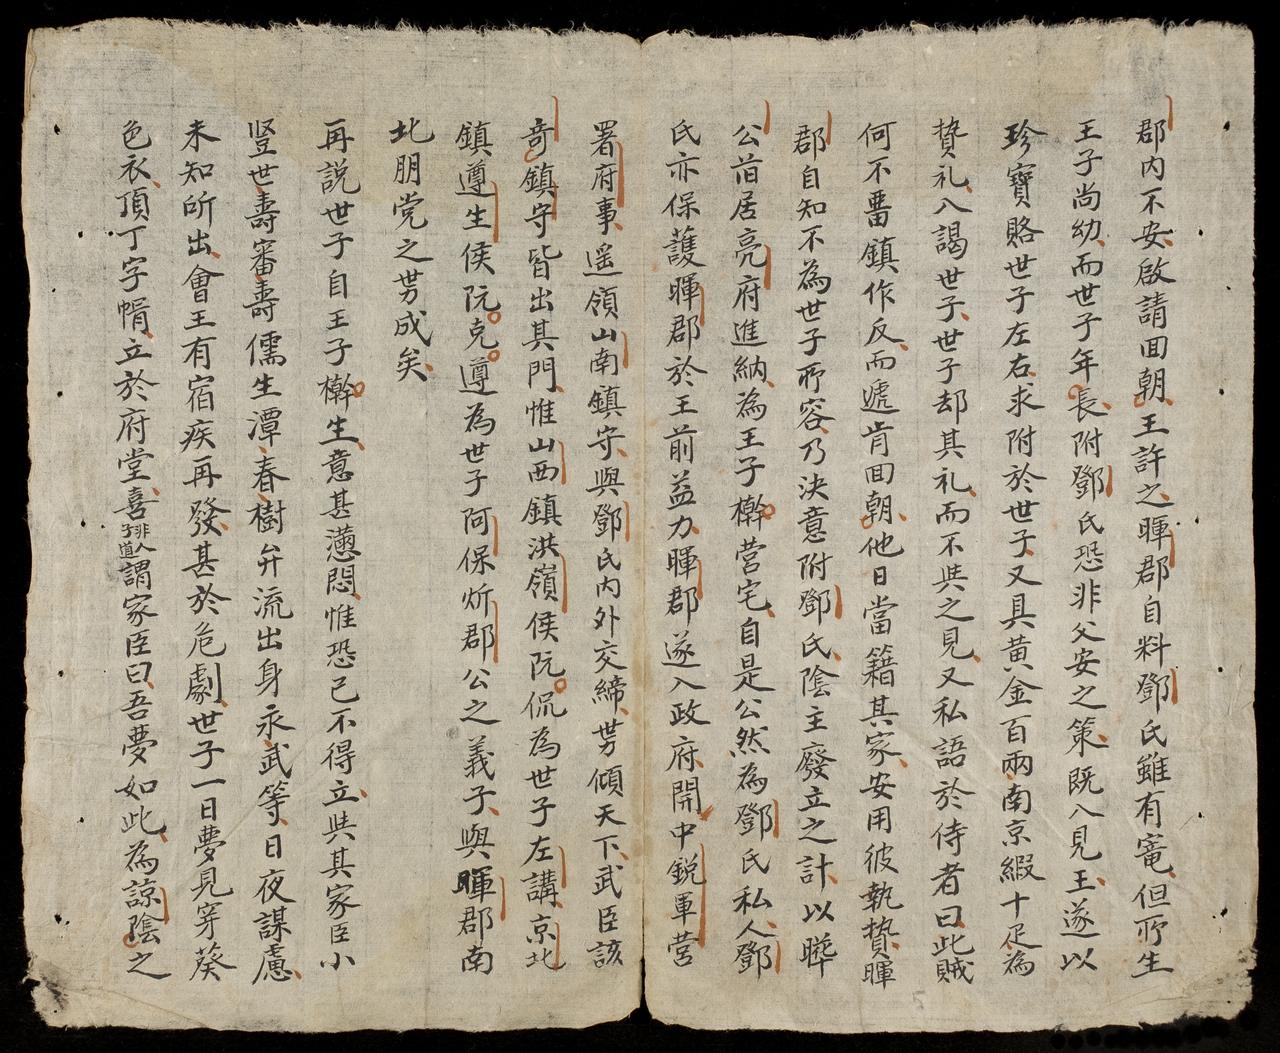 郡内不安啟請回朝王許之暉郡自料鄧氏雖有寵但所生
王子尚幼而世子年長附鄧氏恐非父安之策既入見王遂以
珍寶賂世子左右求附於世子又具黄金百兩南京緞十疋為
贄礼入謁世子世子却其礼而不與之見又私語於侍者曰此賊
何不畱鎮作反而遽肯回朝他日當籍其家安用彼執贄暉
郡自知不為世子所容乃決意附鄧氏陰主廢立之計以聯
公前居亮府進納為王子檊营宅自是公然為鄧氏私人鄧
氏亦保護暉郡於王前益力暉郡遂入政府開中銳軍营
署府事遥領山南鎮守與鄧氏内外交締势傾天下武臣該
奇鎮守皆出其門惟山西鎮洪嶺侯阮侃為世子左講京北
鎮遵生侯阮克遵為世子阿保炘郡公之義子與暉郡南
北朋党之势成矣
再説世子自王子檊生意甚懑悶惟恐己不得立與其家臣小
豎世壽審壽儒生潭春樹弁流出身永武等日夜謀慮
未知所出會王有宿疾再發甚於危劇世子一日夢見穿葵
色衣頂丁字幘立於府堂喜非人子道謂家臣曰吾夢如此為諒陰之